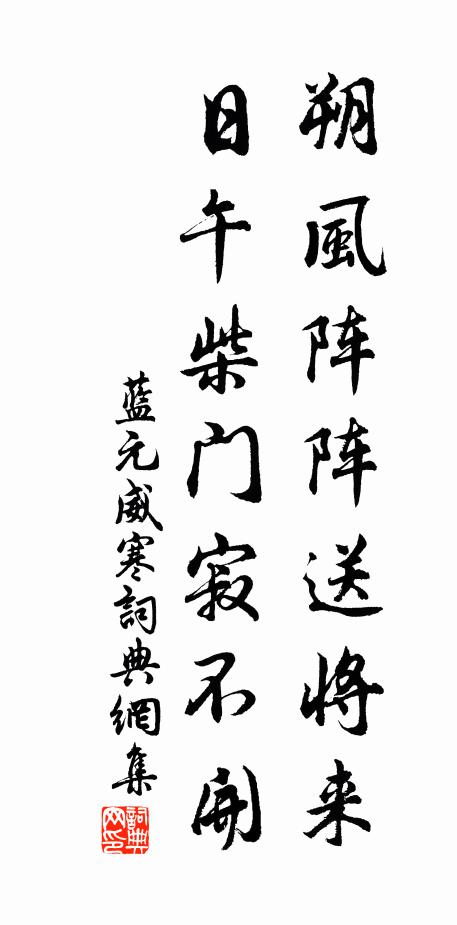 朔風阵阵送將来
日午柴门寂不開
藍元威寒詞典網集
詞典网印